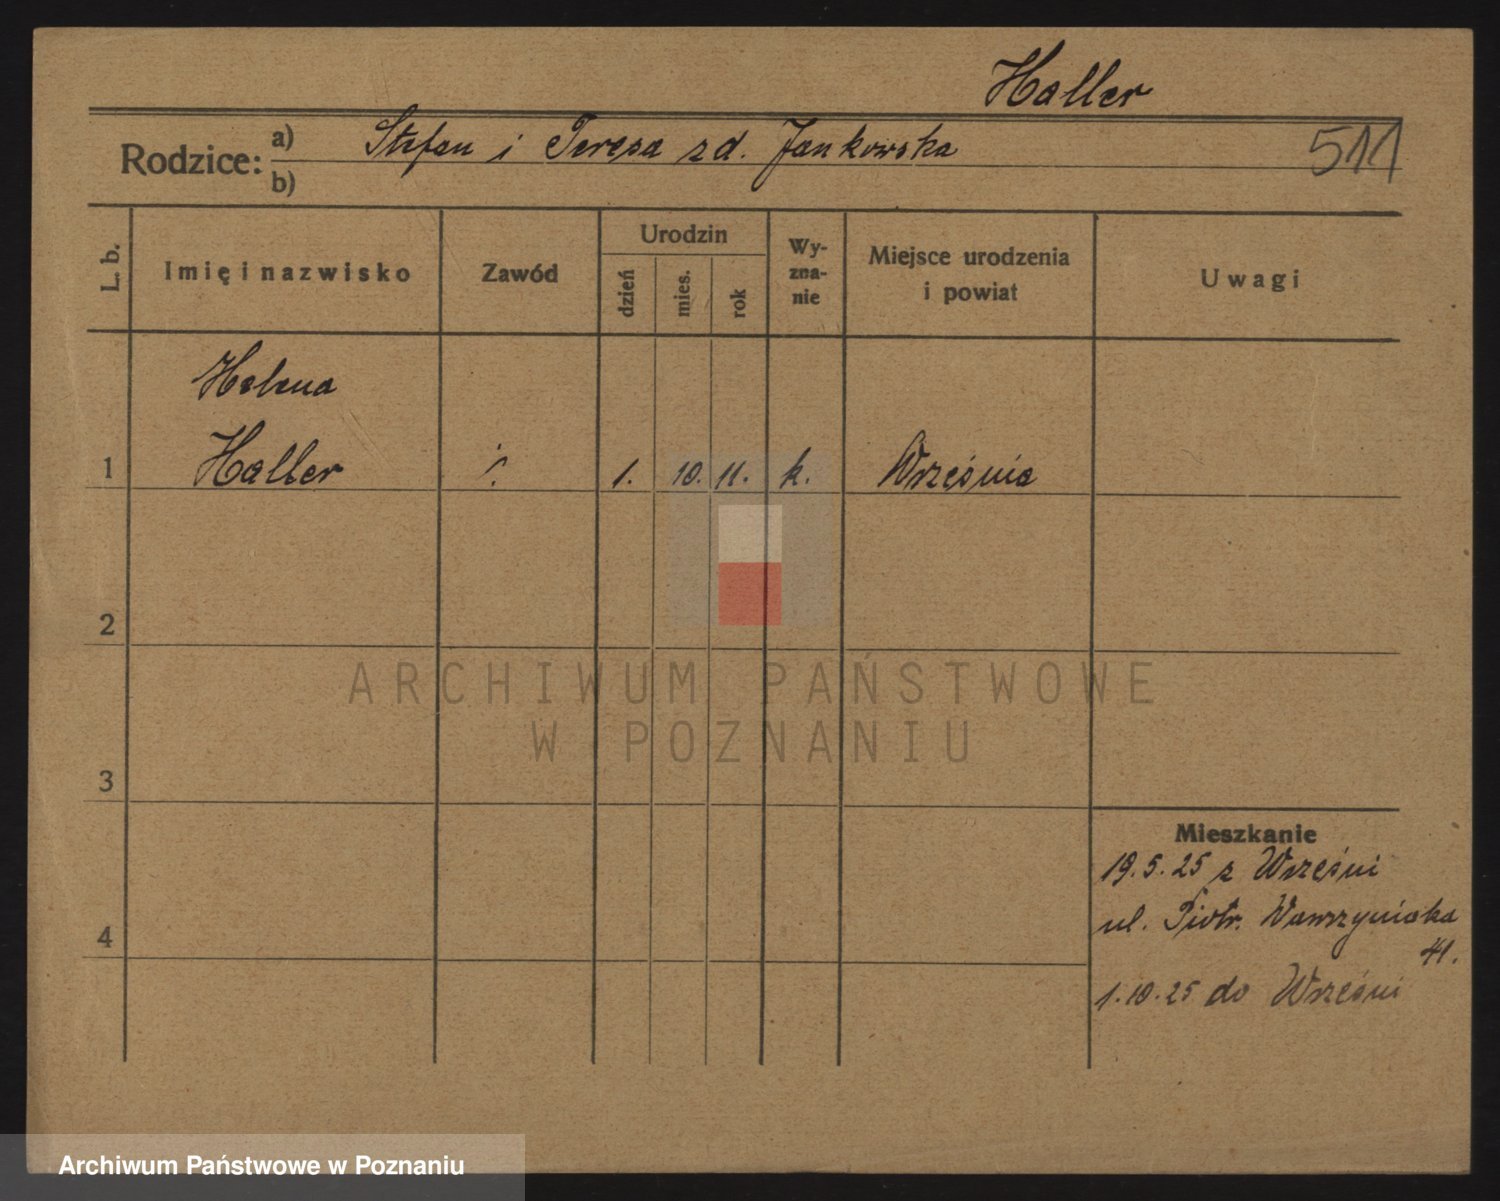 Haller
Rodzice: a) Stefan i Teresa zd. Jankowska
b)
511
L. b.
Imię i nazwisko
Zawód
Urodzin
dzień
mies.
rok
Wy-
zna-
nie
Miejsce urodzenia
i powiat
Uwagi
Helena
1 Haller 1. 10. 11. k. Września
2
3
4
Mieszkanie
19.5.25 z Wrześni
ul. Piotr. Wawrzyniaka
41.
1.10.25 do Wrześni
ARCHIWUM PAŃSTWOWE
W POZNANIU
Archiwum Państwowe w Poznaniu